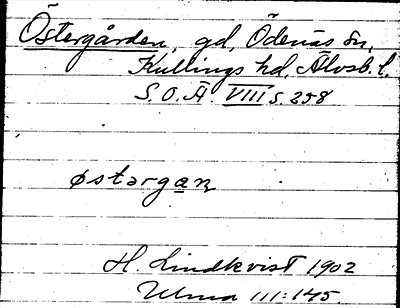 Östergården, gd, Ödenäs sn,
Kullings hd, Älvsb. l.
S.O.Ä. VIII s. 258
østərgan
H. Lindkvist 1902
Ulma 111:145.